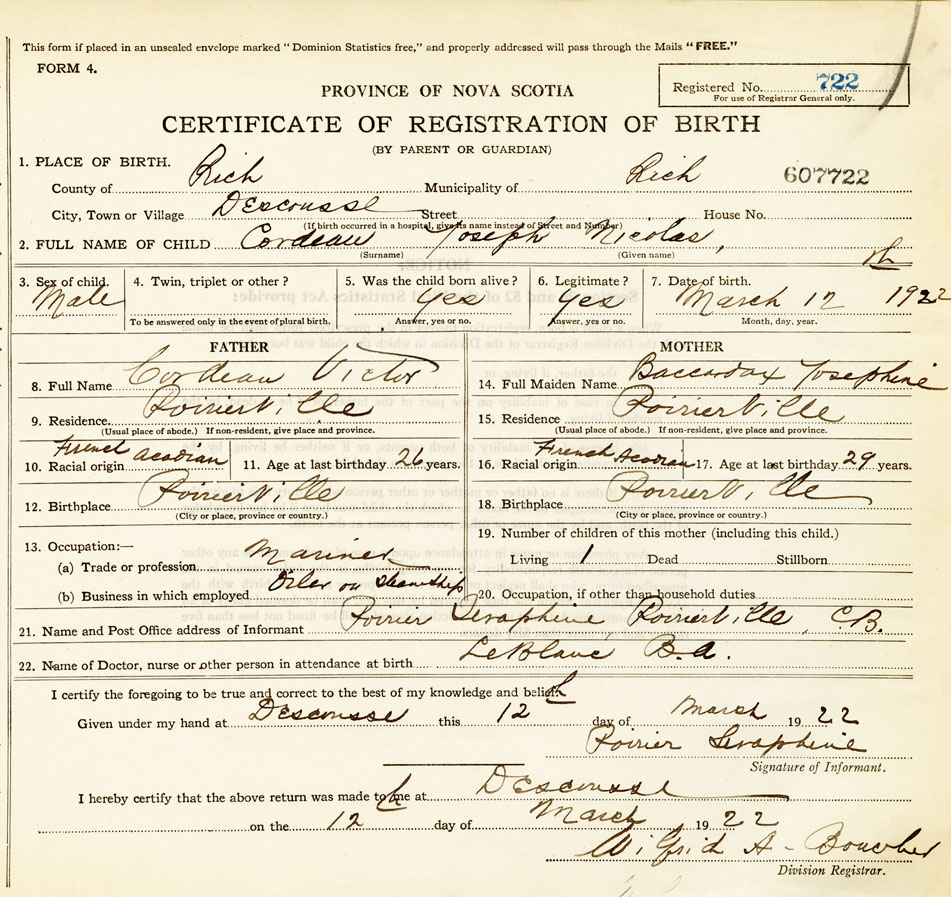 This form if placed in an unsealed envelope marked "Dominion Statistics free," and properly addressed will pass through the Mails "FREE."
FORM 4.
Registered No. 722
For use of Registrar General only.
PROVINCE OF NOVA SCOTIA
CERTIFICATE OF REGISTRATION OF BIRTH
(BY PARENT OR GUARDIAN)
1. PLACE OF BIRTH.
County of Rich Municipality of Rich 607722
City, Town or Village Descousse Street House No.
(If birth occurred in a hospital, give its name instead of Street and Number)
2. FULL NAME OF CHILD Cordeau Joseph Nicolas,
(Surname) (Given name)
3. Sex of child. Male
4. Twin, triplet or other?
To be answered only in the event of plural birth.
5. Was the child born alive? Yes
Answer, yes or no.
6. Legitimate? Yes
Answer, yes or no.
7. Date of birth. th
March 12 1922
Month, day, year.
FATHER
8. Full Name Cordeau Victor
9. Residence. Poirierville
(Usual place of abode.) If non-resident, give place and province.
10. Racial origin French Acadian 11. Age at last birthday 26 years.
12. Birthplace Poirierville
(City or place, province or country.)
13. Occupation:—
(a) Trade or profession Mariner
(b) Business in which employed Oiler on Steamship
MOTHER
14. Full Maiden Name Baccardax Josephine
15. Residence Poirierville
(Usual place of abode.) If non-resident, give place and province.
16. Racial origin French Acadian 17. Age at last birthday 29 years.
18. Birthplace Poirierville
(City or place, province or country.)
19. Number of children of this mother (including this child.)
Living 1 Dead Stillborn
20. Occupation, if other than household duties
21. Name and Post Office address of Informant Poirier Seraphine, Poirierville, C.B.
22. Name of Doctor, nurse or other person in attendance at birth LeBlanc B.A.
I certify the foregoing to be true and correct to the best of my knowledge and belief.
Given under my hand at Descousse this 12th day of March 1922
Poirier Seraphine
Signature of Informant.
I hereby certify that the above return was made to me at Descousse
on the 12th day of March 1922
Wilfrid A. Boucher
Division Registrar.